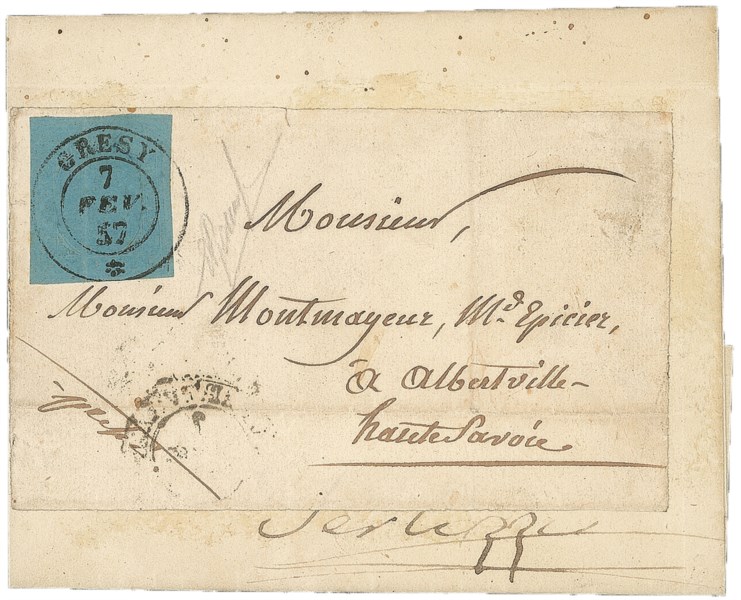 GRESY
7
FEV.
57
Monsieur,
Monsieur Montmayeur, Md. Epicier,
à Albertville
haute Savoie